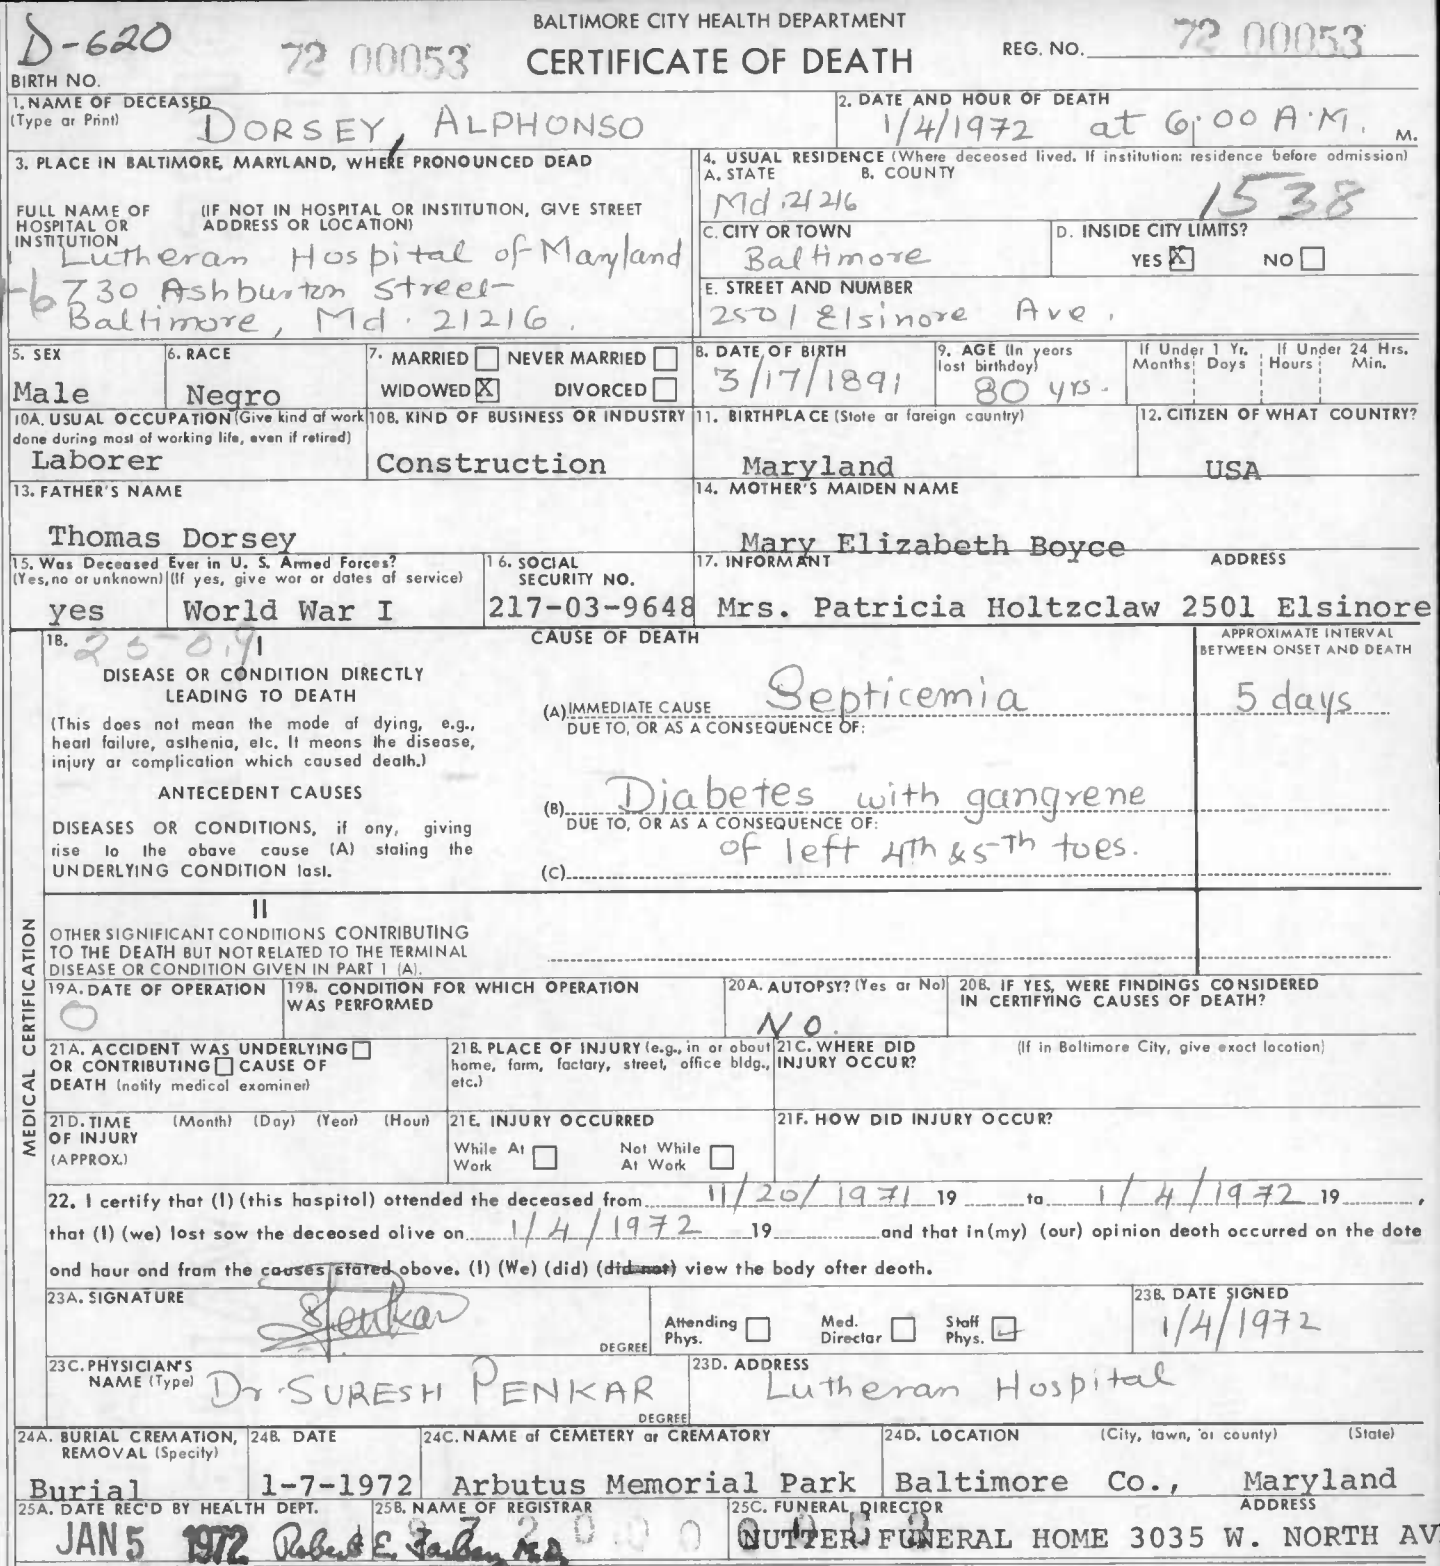 BALTIMORE CITY HEALTH DEPARTMENT
D-620 72 00053 CERTIFICATE OF DEATH REG. NO. 72 00053
BIRTH NO.
1. NAME OF DECEASED (Type or Print) DORSEY, ALPHONSO
2. DATE AND HOUR OF DEATH 1/4/1972 at 6:00 A.M. M.
3. PLACE IN BALTIMORE, MARYLAND, WHERE PRONOUNCED DEAD
FULL NAME OF HOSPITAL OR INSTITUTION (IF NOT IN HOSPITAL OR INSTITUTION, GIVE STREET ADDRESS OR LOCATION)
Lutheran Hospital of Maryland
730 Ashburton Street-
Baltimore, Md. 21216.
4. USUAL RESIDENCE (Where deceased lived. If institution: residence before admission)
A. STATE B. COUNTY
Md. 21216 1538
C. CITY OR TOWN Baltimore
D. INSIDE CITY LIMITS? YES X NO
E. STREET AND NUMBER
2501 Elsinore Ave.
5. SEX Male
6. RACE Negro
7. MARRIED NEVER MARRIED
WIDOWED X DIVORCED
8. DATE OF BIRTH 3/17/1891
9. AGE (In years last birthday) 80 yrs.
If Under 1 Yr. Months Days If Under 24 Hrs. Hours Min.
10A. USUAL OCCUPATION (Give kind of work done during most of working life, even if retired)
Laborer
10B. KIND OF BUSINESS OR INDUSTRY
Construction
11. BIRTHPLACE (State or foreign country)
Maryland
12. CITIZEN OF WHAT COUNTRY?
USA
13. FATHER'S NAME
Thomas Dorsey
14. MOTHER'S MAIDEN NAME
Mary Elizabeth Boyce
15. Was Deceased Ever in U. S. Armed Forces?
(Yes, no or unknown) (If yes, give war or dates of service)
yes World War I
16. SOCIAL SECURITY NO.
217-03-9648
17. INFORMANT ADDRESS
Mrs. Patricia Holtzclaw 2501 Elsinore
MEDICAL CERTIFICATION
18. 250.9 I
CAUSE OF DEATH
APPROXIMATE INTERVAL BETWEEN ONSET AND DEATH
DISEASE OR CONDITION DIRECTLY LEADING TO DEATH
(This does not mean the mode of dying, e.g., heart failure, asthenia, etc. It means the disease, injury or complication which caused death.)
(A) IMMEDIATE CAUSE Septicemia 5 days
DUE TO, OR AS A CONSEQUENCE OF:
ANTECEDENT CAUSES
DISEASES OR CONDITIONS, if any, giving rise to the above cause (A) stating the UNDERLYING CONDITION last.
(B) Diabetes with gangrene
DUE TO, OR AS A CONSEQUENCE OF:
of left 4th & 5th toes.
(C)
II
OTHER SIGNIFICANT CONDITIONS CONTRIBUTING TO THE DEATH BUT NOT RELATED TO THE TERMINAL DISEASE OR CONDITION GIVEN IN PART 1 (A).
19A. DATE OF OPERATION 0
19B. CONDITION FOR WHICH OPERATION WAS PERFORMED
20A. AUTOPSY? (Yes or No) NO.
20B. IF YES, WERE FINDINGS CONSIDERED IN CERTIFYING CAUSES OF DEATH?
21A. ACCIDENT WAS UNDERLYING OR CONTRIBUTING CAUSE OF DEATH (notify medical examiner)
21B. PLACE OF INJURY (e.g., in or about home, farm, factory, street, office bldg., etc.)
21C. WHERE DID INJURY OCCUR? (If in Baltimore City, give exact location)
21D. TIME OF INJURY (APPROX.) (Month) (Day) (Year) (Hour)
21E. INJURY OCCURRED
While At Work Not While At Work
21F. HOW DID INJURY OCCUR?
22. I certify that (I) (this hospital) attended the deceased from 11/20/1971 19 to 1/4/1972 19 ,
that (I) (we) last saw the deceased alive on 1/4/1972 19 and that in (my) (our) opinion death occurred on the date
and hour and from the causes stated above. (I) (We) (did) (did not) view the body after death.
23A. SIGNATURE SPenkar DEGREE
Attending Phys. Med. Director Staff Phys.
23B. DATE SIGNED 1/4/1972
23C. PHYSICIAN'S NAME (Type) Dr. SURESH PENKAR DEGREE
23D. ADDRESS Lutheran Hospital
24A. BURIAL CREMATION, REMOVAL (Specify)
Burial
24B. DATE
1-7-1972
24C. NAME of CEMETERY or CREMATORY
Arbutus Memorial Park
24D. LOCATION (City, town, or county) (State)
Baltimore Co., Maryland
25A. DATE REC'D BY HEALTH DEPT.
JAN 5 1972
25B. NAME OF REGISTRAR
Robert E. Farber, M.D.
25C. FUNERAL DIRECTOR ADDRESS
NUTTER FUNERAL HOME 3035 W. NORTH AV